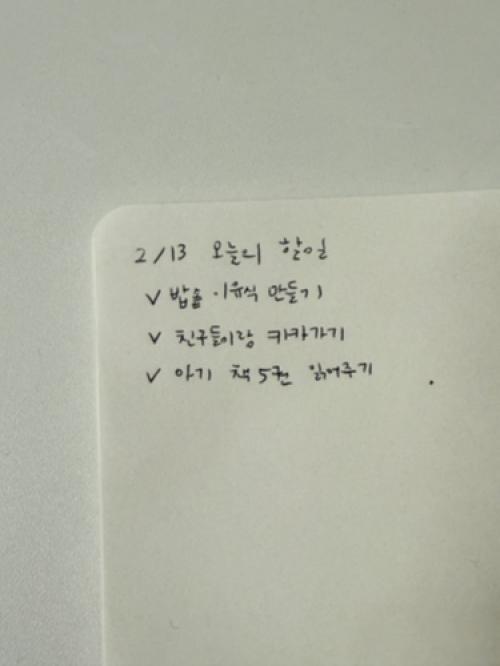 2/13 오늘의 할일
✓ 밥솥 이유식 만들기
✓ 친구들이랑 키카가기
✓ 아기 책 5권 읽어주기